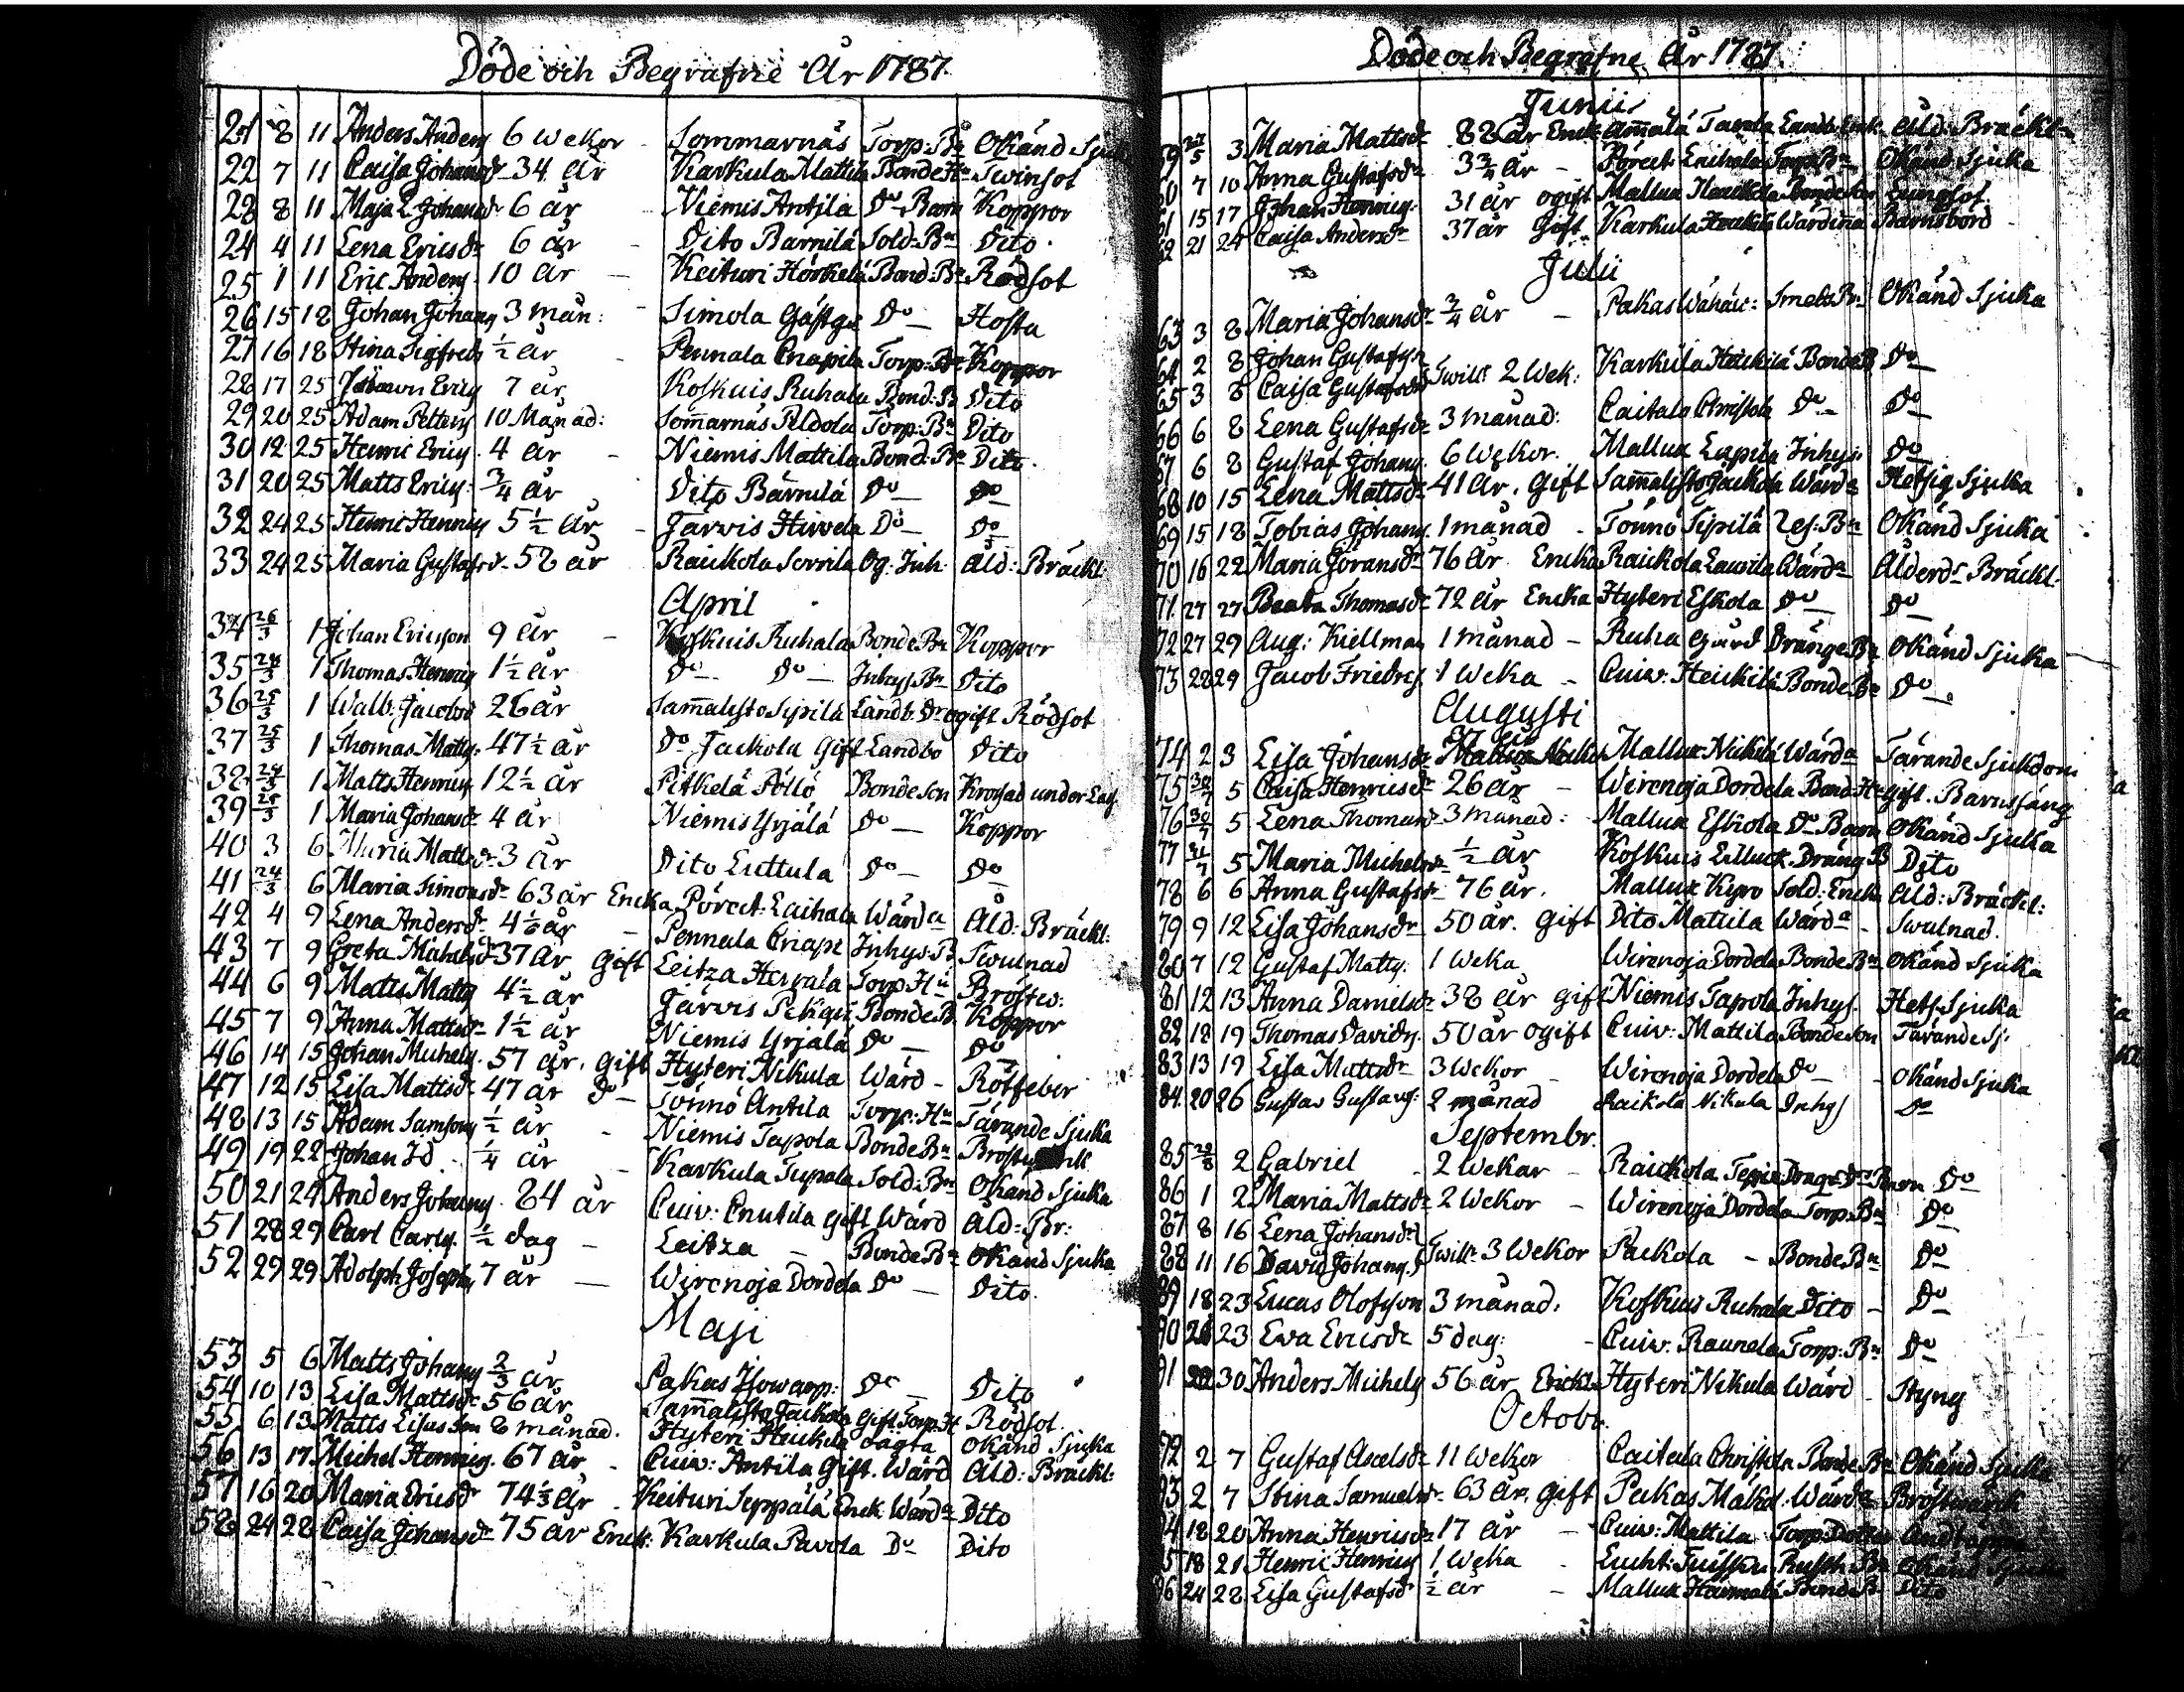 Döde och Begrafne År 1787.
21 8 11 Anders Anders 6 wekor - Sommarnäs Torp: Bn Okänd Sjuk
22 7 11 Caisa Johansdr 34 år Karkula Mattila Bonde Hu Twinsot
23 8 11 Maja L. Johansdr 6 år - Niemis Antila Do Barn Koppor
24 4 11 Lena Ericsdr 6 år - Dito Barnilä Sold: Bn Dito
25 1 11 Eric Anders 10 år - Keituri Hörkelä Bond: Bn Rödsot
26 15 18 Johan Johans 3 mån: Simola Gästg: Do - Hosta
27 16 18 Stina Sigfreds ½ år - Pennala Cnapila Torp: Bn Koppor
28 17 25 Erics 7 år Koskuis Ruhala Bond: B Dito
29 20 25 Adam Petters 10 Månad: Som̄arnäs Peldola Torp: Bn Dito
30 12 25 Henric Erics 4 år - Niemis Mattila Bond: Bn Dito.
31 20 25 Matts Erics ¾ år Dito Bärnilä Do - Do
32 24 25 Henric Henrics 5½ år - Jarwis Hirvela Do - Do
33 24 25 Maria Gustafsdr 58 år Raickola Sorrila Og. Inh. Åld: Bräckl:
April
34 26/3 1 Johan Ericsson 9 år - Koskuis Ruhala Bonde Bn Koppor
35 24/3 1 Thomas Henrics 1½ år Do Do - Inhys Bn Dito
36 25/3 1 Walb: Jacobsd 26 år Sam̄alisto Sipilä Landb. Dr ogift Rödsot
37 25/3 1 Thomas Matts: 47½ år Do Jackola Gift Landbo Dito
38 24/3 1 Matts Henrics 12½ år Pitkelä Pöllö Bonde Son Krossad under Lass
39 25/3 1 Maria Johansdr 4 år Niemis Yrjälä Do - Koppor
40 3 6 Maria Mattsdr 3 år Dito Luttula Do - Do
41 24/3 6 Maria Simonsdr 63 år Encka Pörect: Laihala Wärda Åld: Bräckl:
42 4 9 Lena Andersdr 4½ år - Pennala Cnape Inhys: B Swulnad
43 7 9 Greta Michelsdr 37 år Gift Leitza Hervala Torp. Hu Bröstw:
44 6 9 Matts Matts 4½ år Järvis Pekqui Bonde B. Koppor
45 7 9 Anna Mattsdr 1½ år Niemis Yrjälä Do - Do
46 14 15 Johan Michels. 57 år. Gift Hyteri Nikula Wärd - Rötfeber
47 12 15 Lisa Mattsdr 47 år Do - Tönnö Antila Torp: Hu Tärande Sjuka
48 13 15 Adam Samsons ½ år - Niemis Tapola Bonde Bn
49 19 22 Johan Id ¼ år - Karkula Tupala Sold: Bn Okänd Sjuka
50 21 24 Anders Johans 84 år Cuiv: Cnutila gift Wärd Åld: Br:
51 28 29 Carl Carls. ½ dag - Leitza - Bonde Bn Okänd Sjuka
52 29 29 Adolph Josephs 7 år - Wirenoja Dordela Do - Dito.
Maji
53 5 6 Matts Johans ⅔ år Pakas Isowarp: Do - Dito
54 10 13 Lisa Mattsdr 56 år Sam̄alisto Jackola Gift Torp. H Rödsot.
55 6 13 Matts Lisas Son 8 månad. Hyteri Heickilä oägta Okänd Sjuka
56 13 17 Michel Henrics. 67 år - Cuiv: Antila Gift. Wärd Åld: Bräckl:
57 16 20 Maria Ericsdr 74⅓ år - Keituri Seppälä Enck. Wärda Dito
58 24 28 Caisa Johansdr 75 år Enck: Karkula Pavola Do Dito
Döde och Begrafne År 1787.
Junii
59 27/5 3 Maria Mattsdr 82 år Enck: Am̄älä Tavola Landb. Enk. Åld: Bräckl
60 7 10 Anna Gustafsdr 3¾ år - Pörect: Laihala Torp Bn Okänd Sjuka
61 15 17 Johan Henrics. 31 år ogift Mallux Heickola Bonde Son Lungsot.
62 21 24 Caisa Andersdr 37 år Gift Karkula Heickilä Wärdina Barnsbörd
Julii
63 3 8 Maria Johansdr ¾ år - Pakas Wähäw: Smeds Bn Okänd Sjuka
64 2 8 Johan Gustafsson
65 3 8 Caisa Gustafsdr Twill: 2 Wek: Karkula Heickilä Bonde B Do
66 6 8 Lena Gustafsdr 3 månad: Caitala Christola Do - Do
67 6 8 Gustaf Johans. 6 Wekor. Mallux Lapila Inhys: Do
68 10 15 Lena Mattsdr 41 år. Gift Sam̄alisto Jaickola Wärda Hetsig Sjuka
69 15 18 Tobias Johans. 1 månad - Tönnö Sipilä Res: Bn Okänd Sjuka
70 16 22 Maria Göransdr 76 år Encka Raickola Laurila Wärda Ålderds Bräckl.
71 27 27 Beata Thomasdr 72 år Encka Hyteri Eskola Do - Do
72 27 29 Aug: Kiellman 1 månad - Ruha Gård Dränge Bn Okänd Sjuka
73 28 29 Jacob Friedrs. 1 Weka - Cuiv: Heickilä Bonde Bn Do
Augusti
74 2 3 Lisa Johansdr Mallux Nickilä Wärda Tärande Sjukdom
75 30/7 5 Caisa Henricsdr 26 år - Wirenoja Dordela Bond Hu gift. Barnssäng
76 30/7 5 Lena Thomasdr 3 månad: Mallux Eskola Do Barn Okänd Sjuka
77 31/7 5 Maria Michelsdr ½ år Koskuis Lilluck. Dräng B Dito
78 6 6 Anna Gustafsdr 76 år. Mallux Kyro Sold: Encka Åld: Bräckl:
79 9 12 Lisa Johansdr 50 år. Gift Dito Mattila Wärda - Swulnad.
80 7 12 Gustaf Matts. 1 Weka Wirenoja Dordela Bonde Bn Okänd Sjuka
81 12 13 Anna Danielsdr 38 år gift Niemis Tapola Inhys. Hets. Sjuka
82 18 19 Thomas Davids. 50 år ogift Cuiv: Mattila Bonde Son Tärande Sj.
83 13 19 Lisa Mattsdr 3 Wekor - Wirenoja Dordela Do - Okänd Sjuka
84 20 26 Gustav Gustavs: 2 månad Raikola Nikula Inhys Do
Septembr.
85 28/8 2 Gabriel - 2 Wekar - Raickola Barn Do
86 1 2 Maria Mattsdr 2 Wekor - Wirenoja Dordela Torp. Bn Do
87 8 16 Lena Johansdr
88 11 16 David Johans. Twill: 3 Wekor Packola - Bonde Bn Do
89 18 23 Lucas Olofsson 3 månad. Koskuis Ruhala Dito - Do
90 23 Ewa Ericsdr 5 dag: - Cuiv: Raunela Torp. Bn Do
91 30 Anders Michels 56 år Enckl. Hyteri Nikula Wärd - Styng
Octobr.
92 2 7 Gustaf 11 Wekor Caitala Christola Bonde Bn Okänd Sjuka
93 2 7 Stina Samuelsdr 63 år. Gift Pakas Mäkel. Wärda Bröstwärk
94 18 20 Anna Henricsdr 17 år - Cuiv: Mattila Torp. Dotter
95 18 21 Henric Henrics 1 Weka - Okänd Sjuka
96 24 28 Lisa Gustafsdr ½ år - Mallux Bonde B. Dito